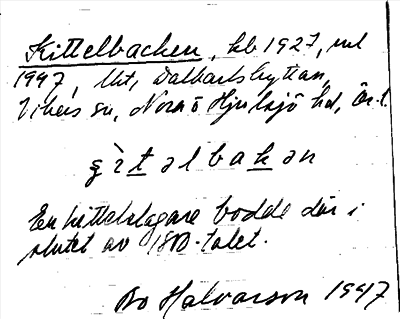 Kittelbacken, hb 1927, ml
1947, lht, Dalkarlshyttan,
Vikers sn, Nora o Hjulsjö hd, Ör. l.
g̀ìt əl bak ən
En kittelslagare bodde där i
slutet av 1800-talet.
Bo Halvarson 1947